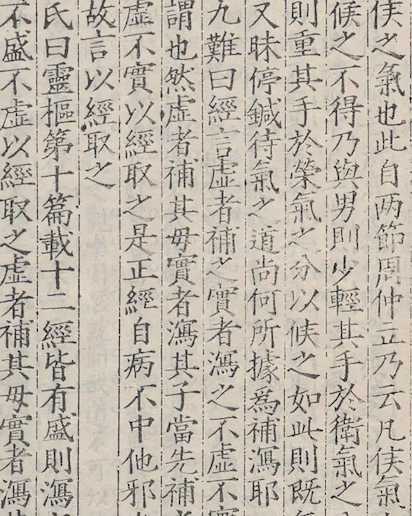 俟之氣也此自两節周仲立乃云凡俟氣
候之不得乃與男則少輕其手於衛氣之
則重其手於榮氣之分以候之如此則既
又昧停鍼待氣之道尚何所據為補瀉耶
九難曰經言虚者補之實者瀉之不虚不實
謂也然虚者補其母實者瀉其子當先補
虚不實以經取之是正經自病不中他邪
故言以經取之
氏曰靈樞第十篇載十二經皆有盛則瀉
不盛不虚以經取之虚者補其母實者瀉